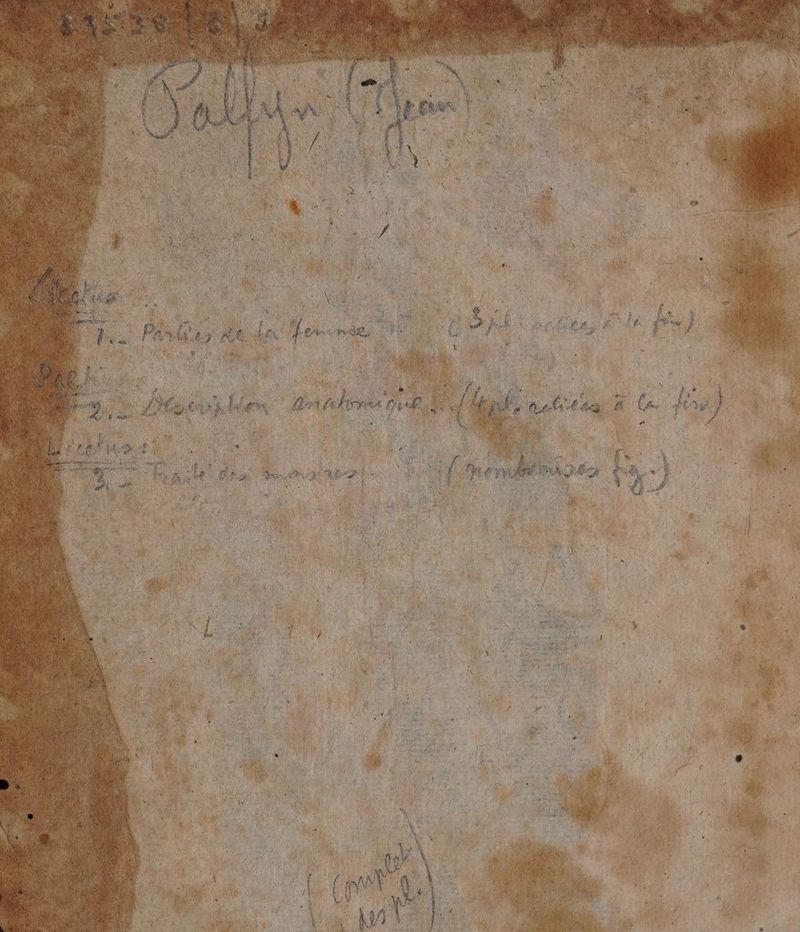 Palfyn (Jean)
Licetus
1.- Parties de la femme (3 pl. reliées à la fin)
Palfyn
2.- Description anatomique. (4 pl. reliées à la fin)
Licetus:
3.- Traité des monstres (nombreuses fig.)
(Complet
des pl.)